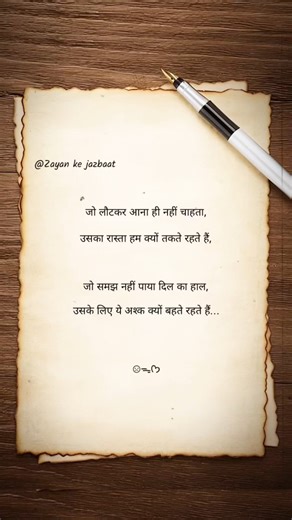 @Zayan ke jazbaat
जो लौटकर आना ही नहीं चाहता,
उसका रास्ता हम क्यों तकते रहते हैं,
जो समझ नहीं पाया दिल का हाल,
उसके लिए ये अश्क क्यों बहते रहते हैं...